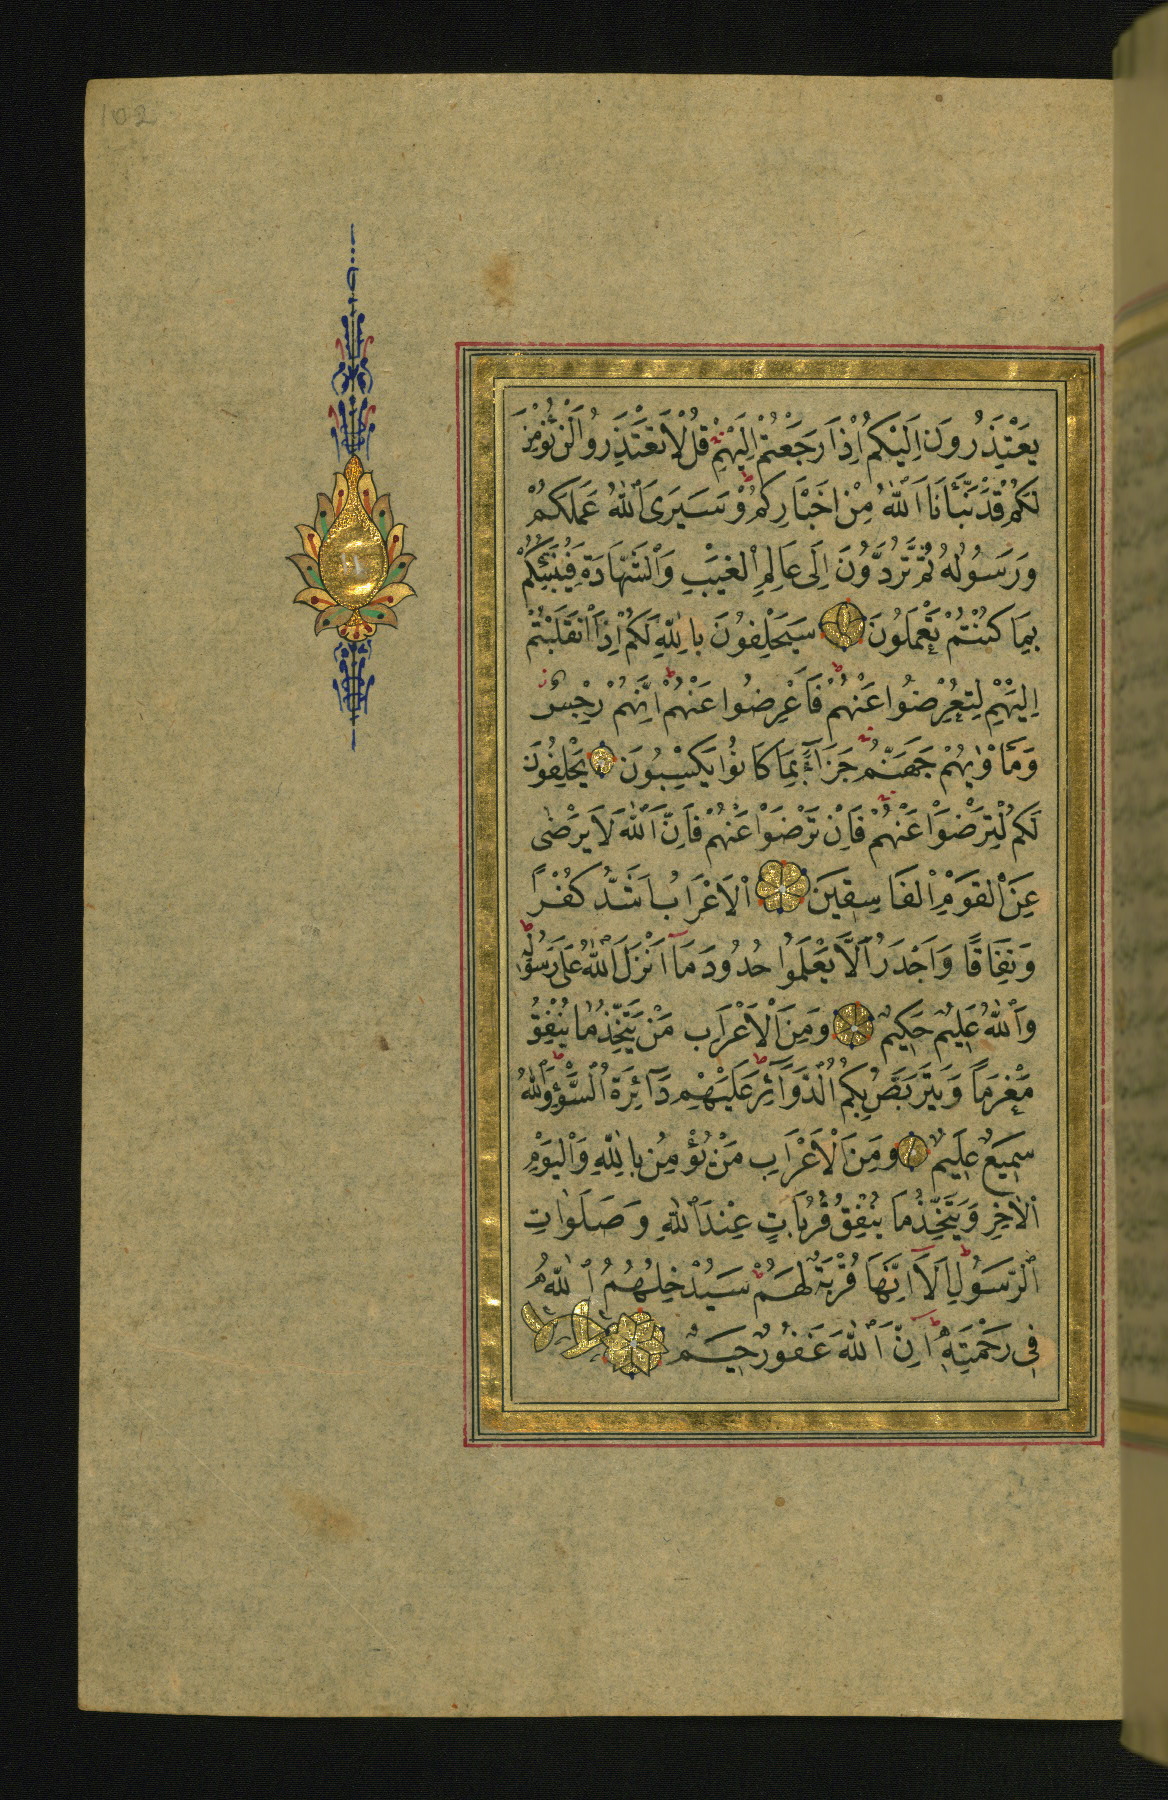 102
١١
يَعْتَذِرُونَ اِلَيْكُمْ اِذَا رَجَعْتُمْ اِلَيْهِمْ قُلْ لَا تَعْتَذِرُوا لَنْ نُؤْمِنَ
لَكُمْ قَدْ نَبَّاَنَا اَللّٰهُ مِنْ اَخْبَارِكُمْ وَسَيَرَى اللّٰهُ عَمَلَكُمْ
وَرَسُولُهُ ثُمَّ تُرَدُّونَ اِلَى عَالِمِ الْغَيْبِ وَالشَّهَادَةِ فَيُنَبِّئُكُمْ
بِمَا كُنْتُمْ تَعْمَلُونَ سَيَحْلِفُونَ بِاللّٰهِ لَكُمْ اِذَا انْقَلَبْتُمْ
اِلَيْهِمْ لِتُعْرِضُوا عَنْهُمْ فَاَعْرِضُوا عَنْهُمْ اِنَّهُمْ رِجْسٌ
وَمَاْوٰيهُمْ جَهَنَّمُ جَزَاءً بِمَا كَانُوا يَكْسِبُونَ يَحْلِفُونَ
لَكُمْ لِتَرْضَوْا عَنْهُمْ فَاِنْ تَرْضَوْا عَنْهُمْ فَاِنَّ اَللّٰهَ لَا يَرْضٰى
عَنِ الْقَوْمِ الْفَاسِقِينَ اَلْاَعْرَابُ اَشَدُّ كُفْرًا
وَنِفَاقًا وَاَجْدَرُ اَلَّا يَعْلَمُوا حُدُودَ مَا اَنْزَلَ اللّٰهُ عَلَى رَسُولِهِ
وَاللّٰهُ عَلِيمٌ حَكِيمٌ وَمِنَ الْاَعْرَابِ مَنْ يَتَّخِذُ مَا يُنْفِقُ
مَغْرَمًا وَيَتَرَبَّصُ بِكُمُ الدَّوَائِرَ عَلَيْهِمْ دَائِرَةُ السَّوْءِ وَاللّٰهُ
سَمِيعٌ عَلِيمٌ وَمِنَ الْاَعْرَابِ مَنْ يُؤْمِنُ بِاللّٰهِ وَالْيَوْمِ
الْاٰخِرِ وَيَتَّخِذُ مَا يُنْفِقُ قُرُبَاتٍ عِنْدَ اللّٰهِ وَصَلَوَاتِ
الرَّسُولِ اَلَا اِنَّهَا قُرْبَةٌ لَهُمْ سَيُدْخِلُهُمُ اللّٰهُ
فِى رَحْمَتِهِ اِنَّ اَللّٰهَ غَفُورٌ رَحِيمٌ